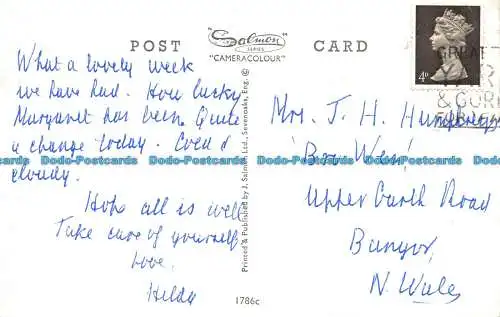 POST CARD
"Salmon SERIES
"CAMERACOLOUR"
4D
GREAT
& GOR
What a lovely week
we have had. How lucky
Margaret has been. Quite
a change today. Cold &
cloudy.
Hope all is well
Take care of yourself,
Love.
Hilda
Printed & Published by J. Salmon, Ltd., Sevenoaks, Eng. ©
1786c
Mrs. J. H. Humphreys
Upper Garth Road
Bangor,
N. Wales
Todo-Postcards Todo-Postcards Todo-Postcards Todo-Postcards